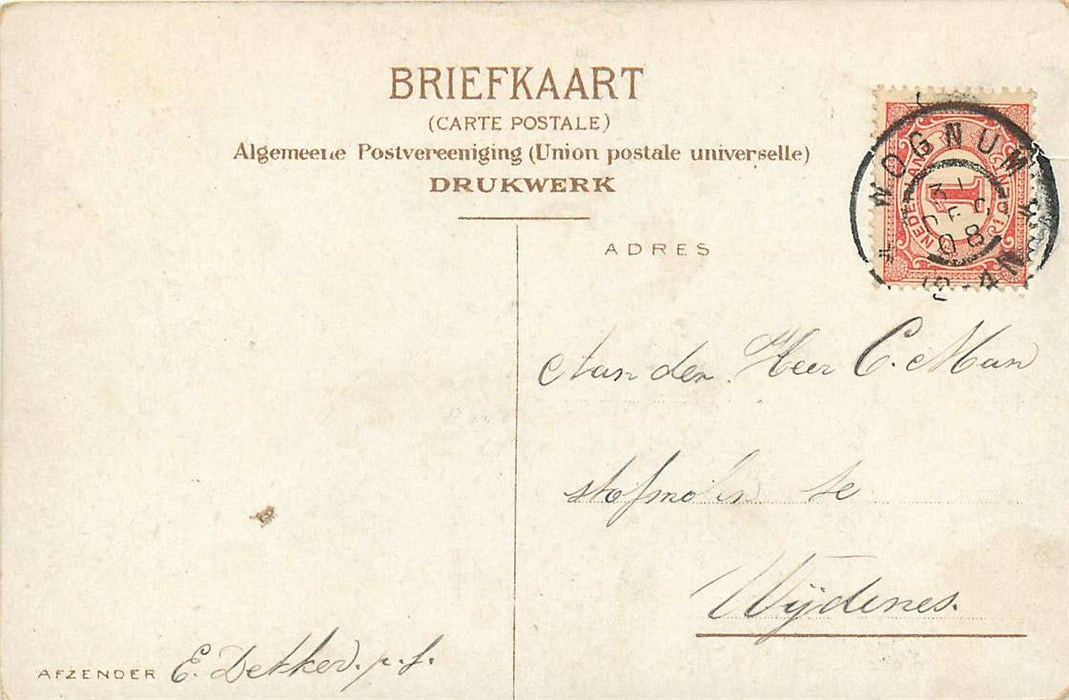 BRIEFKAART
(CARTE POSTALE)
Algemeene Postvereeniging (Union postale universelle)
DRUKWERK
ADRES
WOGNUM
31
DEC
08
12-4N
NEDERLAND
1
Aan den Heer C. Man
te
Wijdenes.
AFZENDER E. Dekker. p.f.